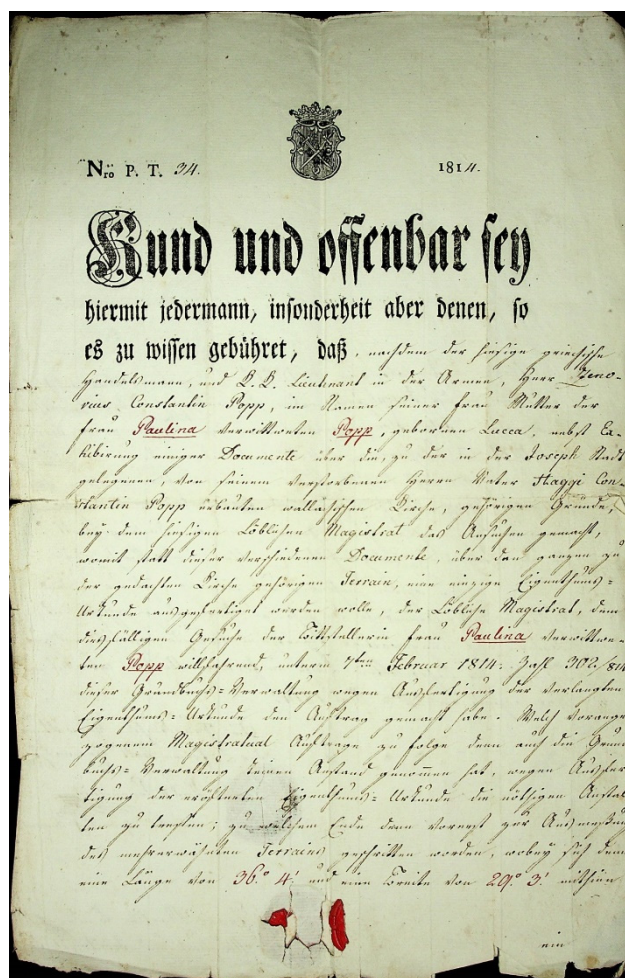 Nro P. T. 34. 1814.
Kund und offenbar sey
hiermit jedermann, insonderheit aber denen, so
es zu wissen gebühret, daß, nachdem der hiesige griechische
Handelsmann, und K. K. Lieutenant in der Armee, Herr Zeno-
vius Constantin Popp, im Namen seiner Frau Mutter der
Frau Paulina verwittweten Popp, gebornen Lucca, nebst Ex-
hibirung einiger Documente über die, zu der in der Joseph Stadt
gelegenen, von seinem verstorbenen Herrn Vater Haggi Con-
stantin Popp erbauten wallachischen Kirche, gehörigen Gründe,
bey dem hiesigen Löblichen Magistrat das Ansuchen gemacht,
womit statt dieser verschiedenen Documente, über den ganzen zu
der gedachten Kirche gehörigen Terrain, eine einzige Eigenthums-
Urkunde ausgefertiget werden wolle, der Löbliche Magistrat, dem
diesfälligen Gesuche der Bittstellerin Frau Paulina verwittwe-
ten Popp willfahrend, unterm 7ten Februar 1814. Zahl 302/814
dieser Grundbuchs-Verwaltung wegen Ausfertigung der verlangten
Eigenthums-Urkunde den Auftrag gemacht habe. Welch vorange-
zogenem Magistratual Auftrage zu folge denn auch die Grund
buchs-Verwaltung keinen Anstand genommen hat, wegen Ausfer
tigung der Eigenthums-Urkunde die nöthigen Anstal
ten zu treffen; zu welchem Ende denn vorerst zur Ausmessung
des mehrerwähnten Terrains geschritten worden, wobey sich denn
eine Länge von 36.° 4.' und eine Breite von 29.° 3.' mithin
ein